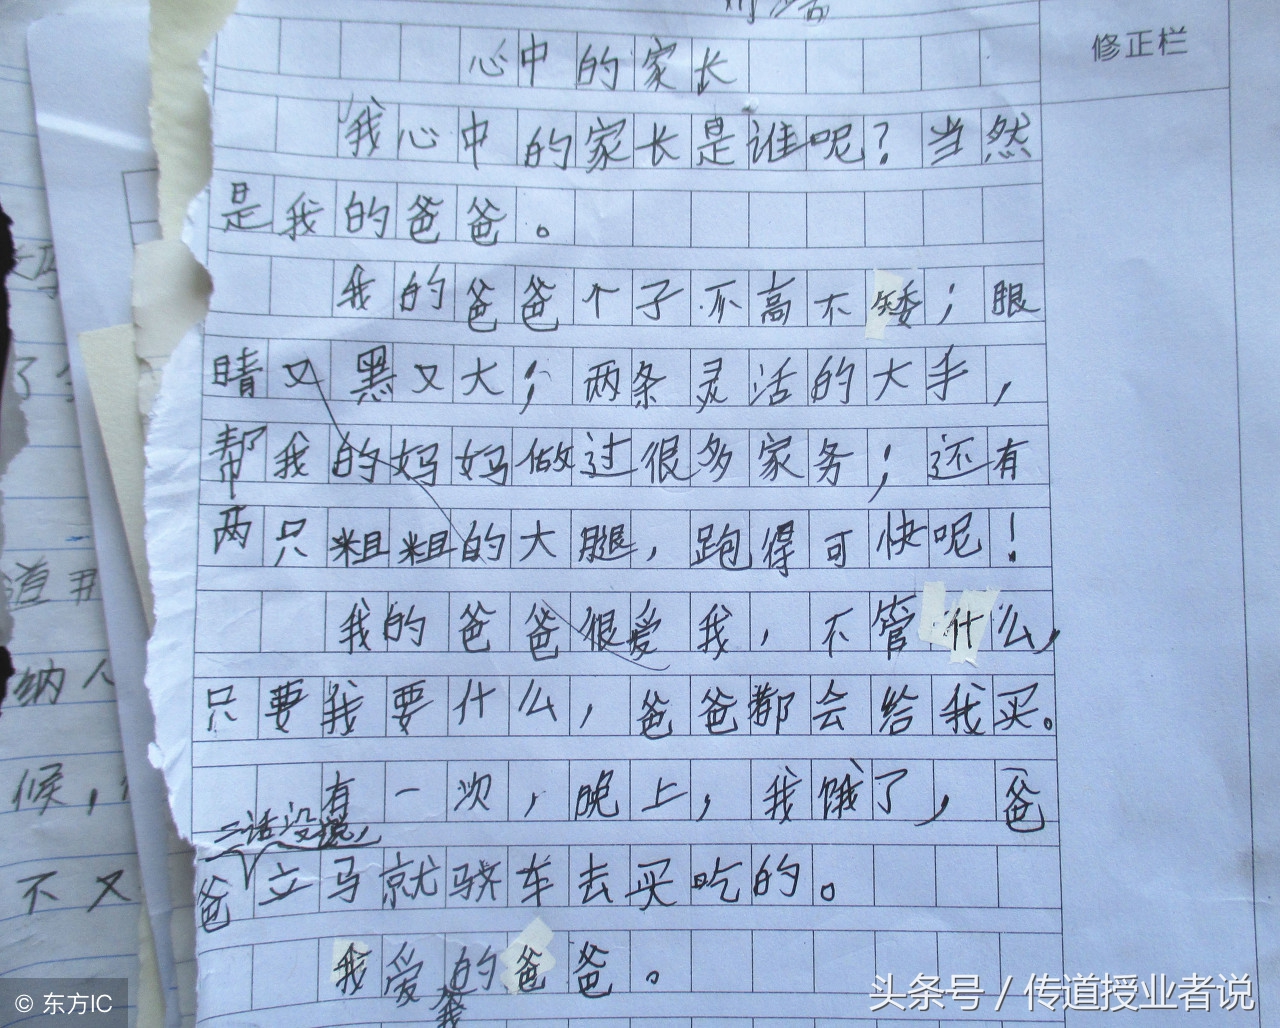 修正栏
心中的家长
我心中的家长是谁呢？当然
是我的爸爸。
我的爸爸个子不高不矮；眼
睛又黑又大；两条灵活的大手，
帮我的妈妈做过很多家务；还有
两只粗粗的大腿，跑得可快呢！
我的爸爸很爱我，不管什么，
只要我要什么，爸爸都会给我买。
有一次，晚上，我饿了，爸
二话没说，
爸立马就骑车去买吃的。
我爱的爸爸。
我
纳人
候，
不又
© 东方IC
头条号 / 传道授业者说